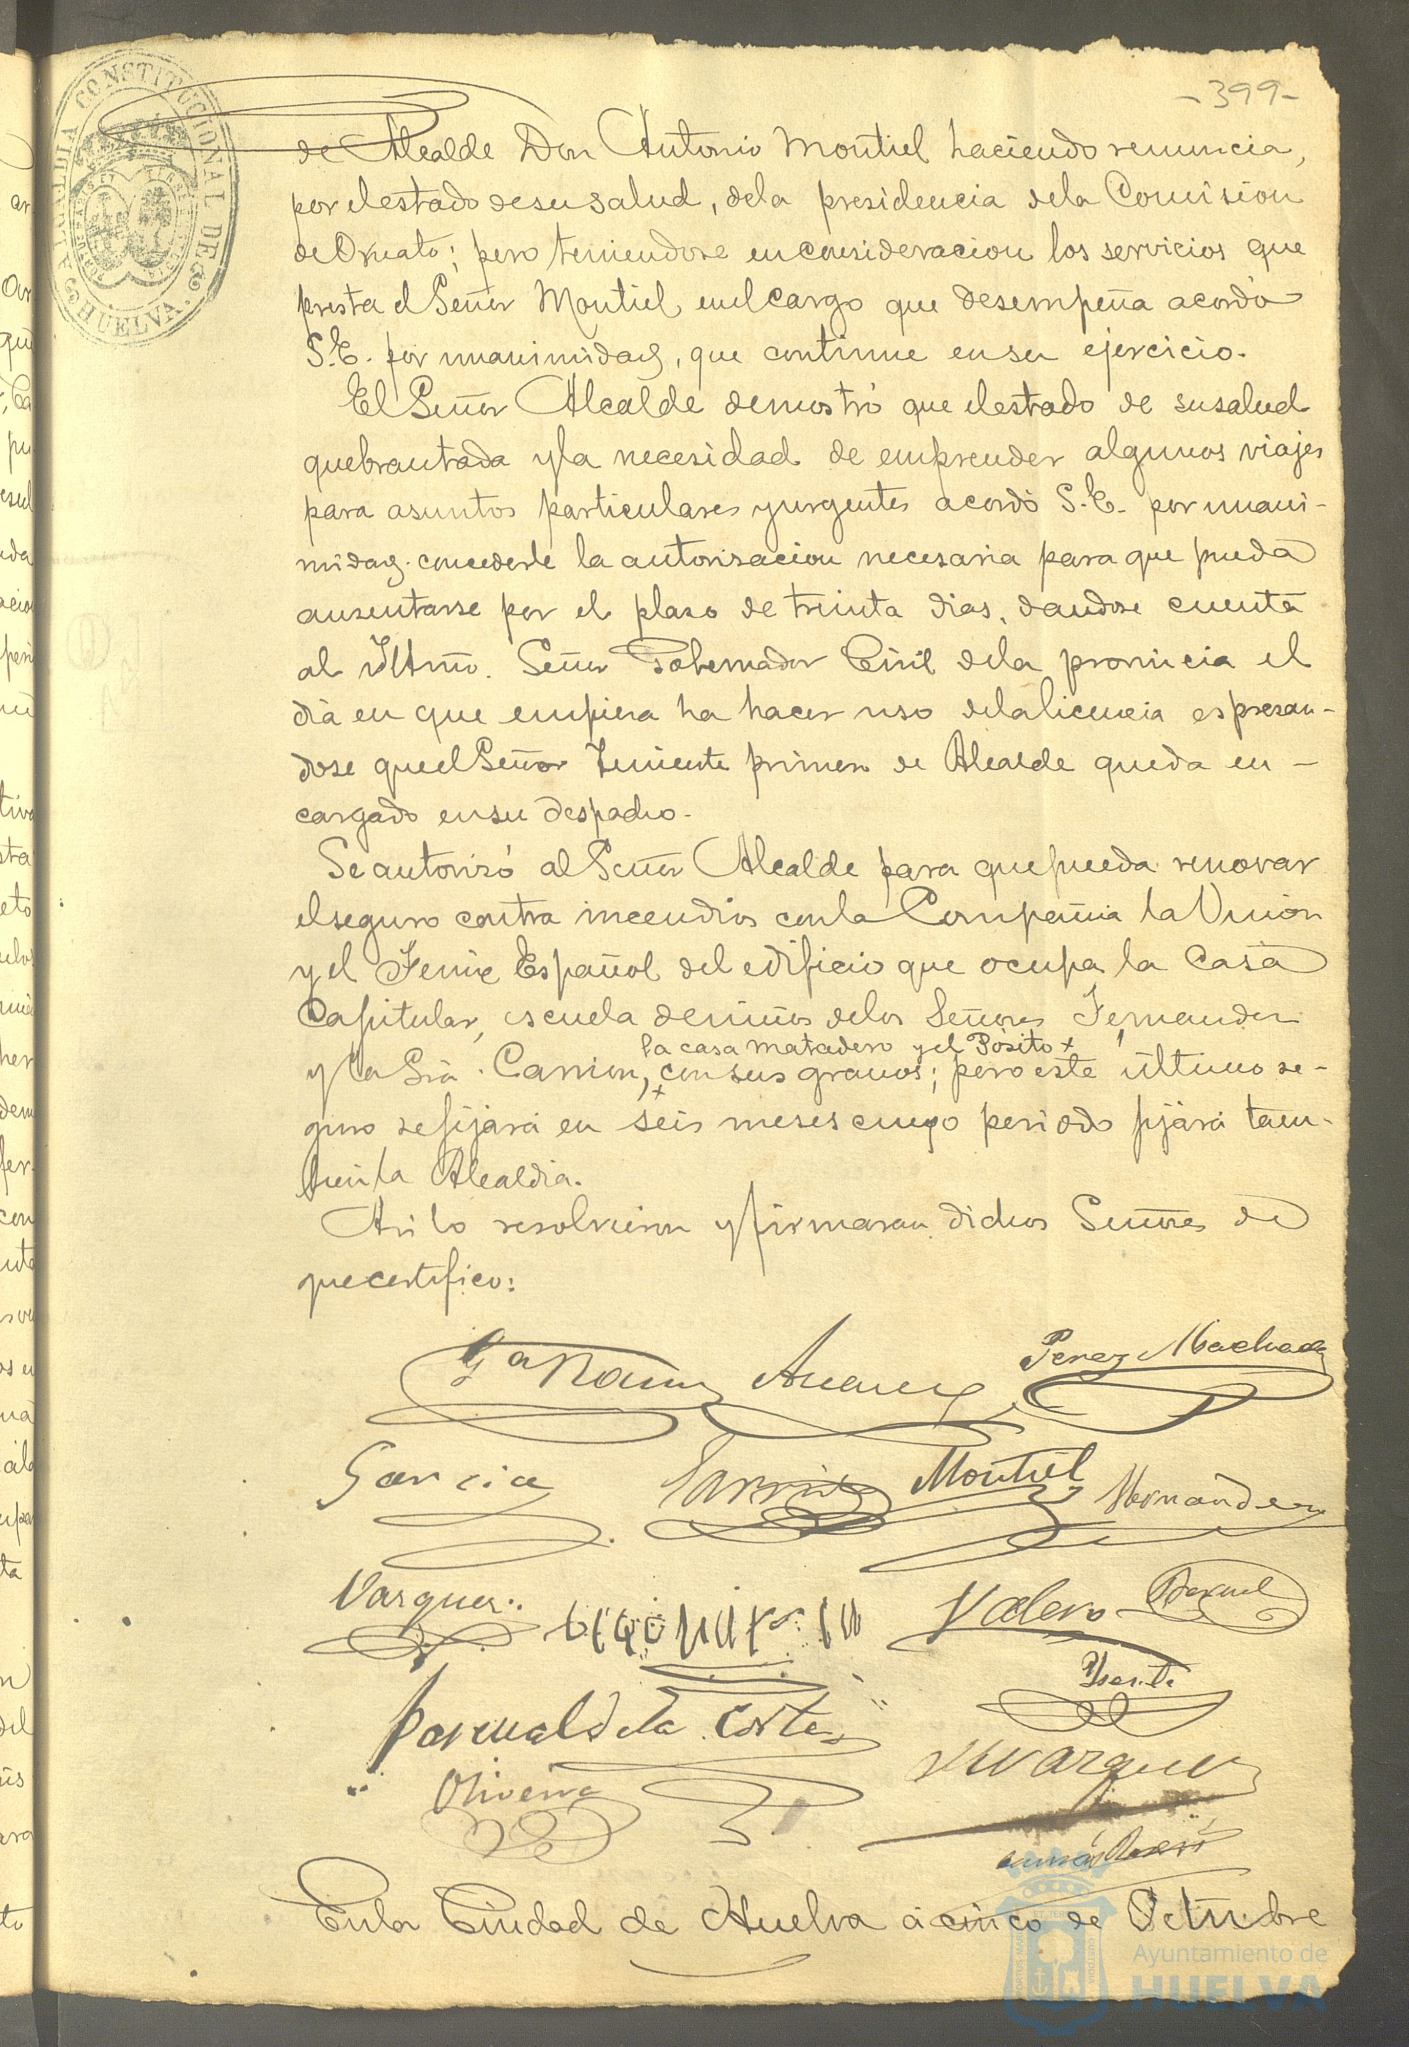 -399-
ALCALDIA CONSTITUCIONAL DE HUELVA.
de Alcalde Don Antonio Montiel haciendo renuncia,
por el estado de su salud, de la presidencia de la Comision
de Ornato; pero teniendose en consideracion los servicios que
presta el Señor Montiel en el cargo que desempeña acordó
S.E. por unanimidad, que continue en su ejercicio.
El Señor Alcalde demostró que el estado de su salud
quebrantada y la necesidad de emprender algunos viajes
para asuntos particulares y urgentes acordó S.E. por unani-
midad. concederle la autorisacion necesaria para que pueda
ausentarse por el plaso de treinta dias, dandose cuenta
al Iltmo. Señor Gobernador Civil de la provincia el
dia en que empiera ha hacer uso de la licencia espresan-
dose que el Señor Teniente primero de Alcalde queda en-
cargado en su despacho.
Se autorizó al Señor Alcalde para que pueda renovar
el seguro contra incendios con la Compañia la Unión
y el Fenix Español del edificio que ocupa la Casa
Capitular, escuela de niños de los Señores Fernander
la casa matadero y el Pósito x
y la Sra. Carrion, con sus granos; pero este último se-
guro se fijará en seis meses cuyo periodo fijará tam-
bien la Alcaldia.
Asi lo resolvieron y firmaran dichos Señores de
que certifico:
Gª Ramos Perez Machado
Garcia Montiel Hernandez
Vazquez Valero
Pascual de la Corte
Oliveira Vazquez
En la Ciudad de Huelva á cinco de Octubre
Ayuntamiento de
HUELVA